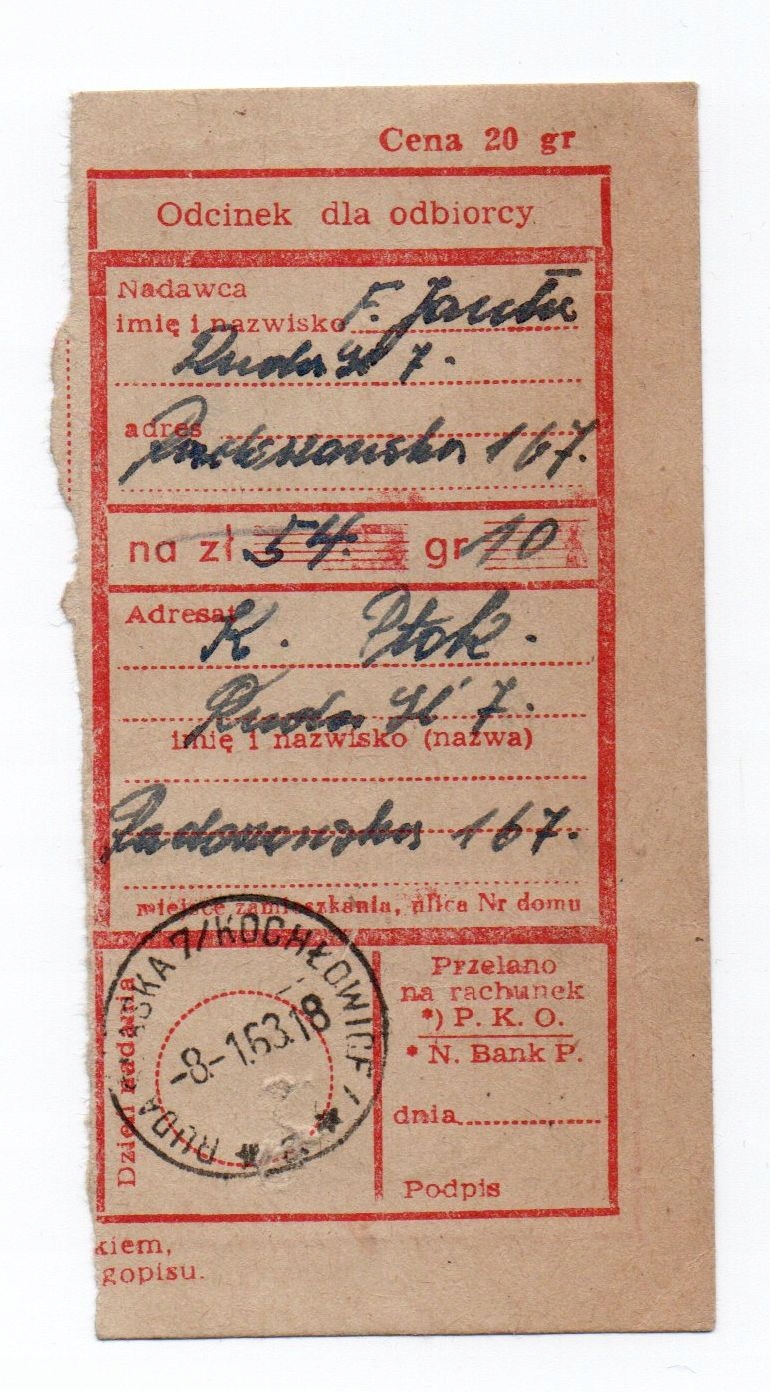 Cena 20 gr
Odcinek dla odbiorcy
Nadawca
imię i nazwisko F.
Ruda Śl 7.
adres
167.
na zł 54. gr 10
Adresat
K. Ptok.
Ruda Śl 7.
imię i nazwisko (nazwa)
167.
miejsce zamieszkania, ulica Nr domu
Dzień nadania
RUDA ŚLĄSKA 7/KOCHŁOWICE 1
-8.-1.63.18
Przelano
na rachunek
*) P. K. O.
* N. Bank P.
dnia
Podpis
kiem,
gopisu.